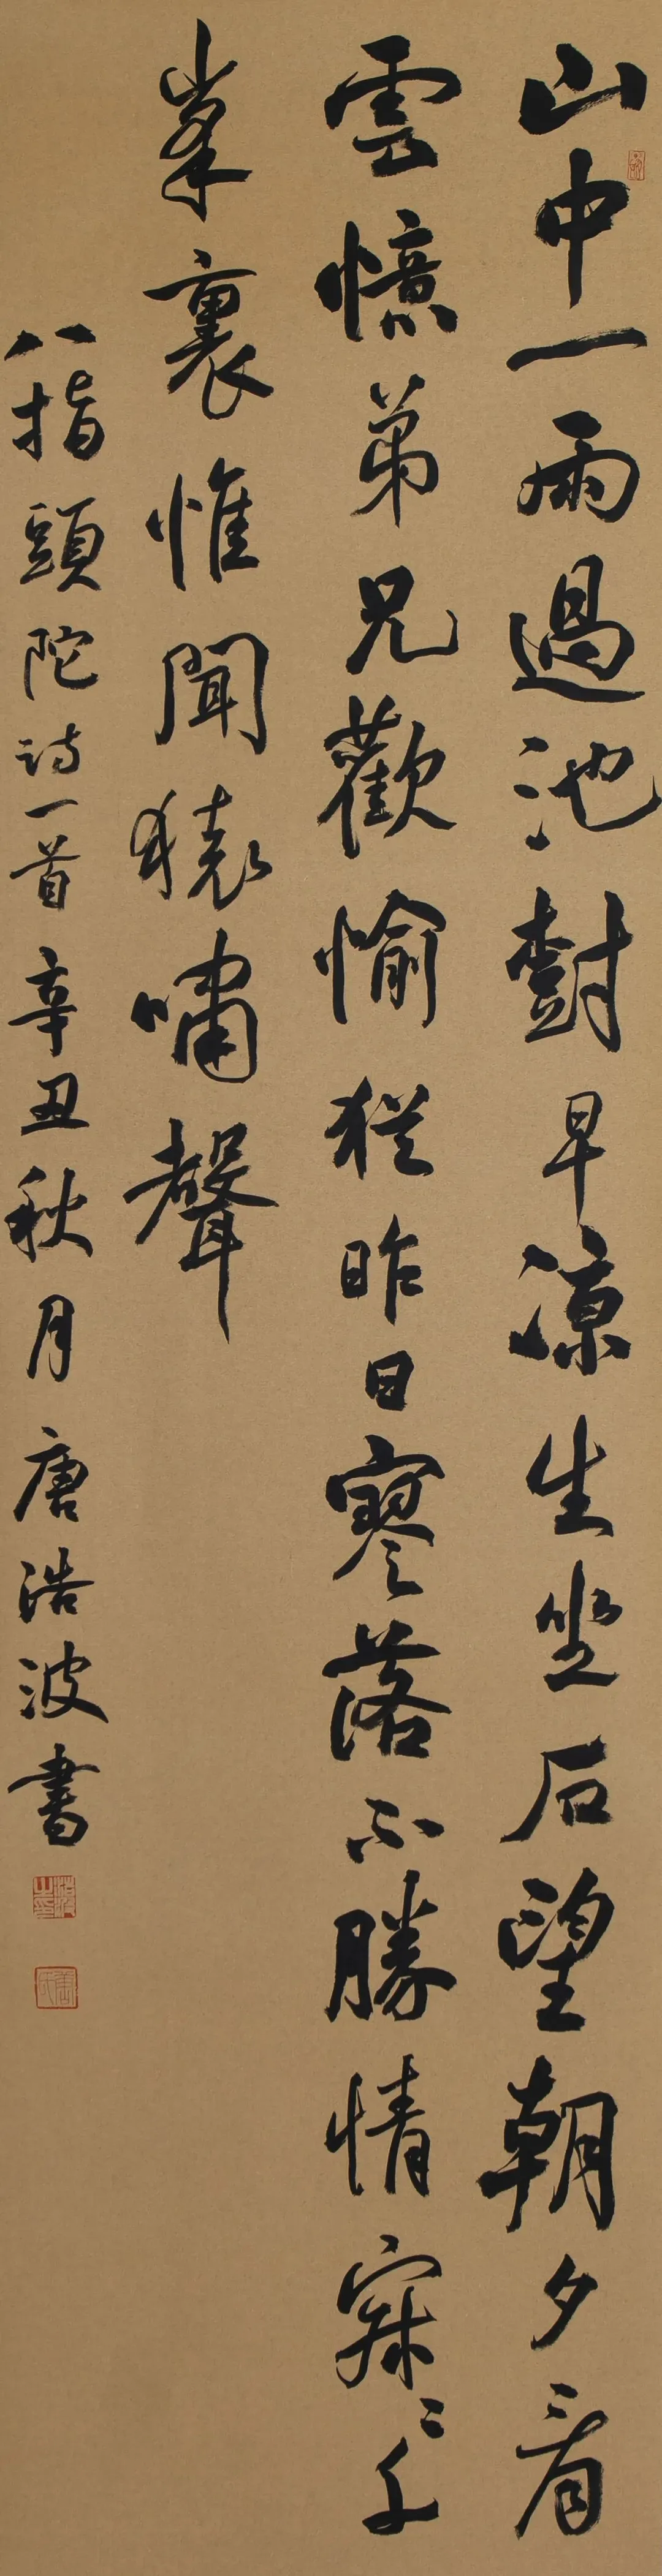 山中一雨過池樹早涼生坐石望朝夕看
雲憶弟兄歡愉猶昨日寥落不勝情寂〻千
峯裏惟聞猿嘯聲
八指頭陀詩一首辛丑秋月唐浩波書